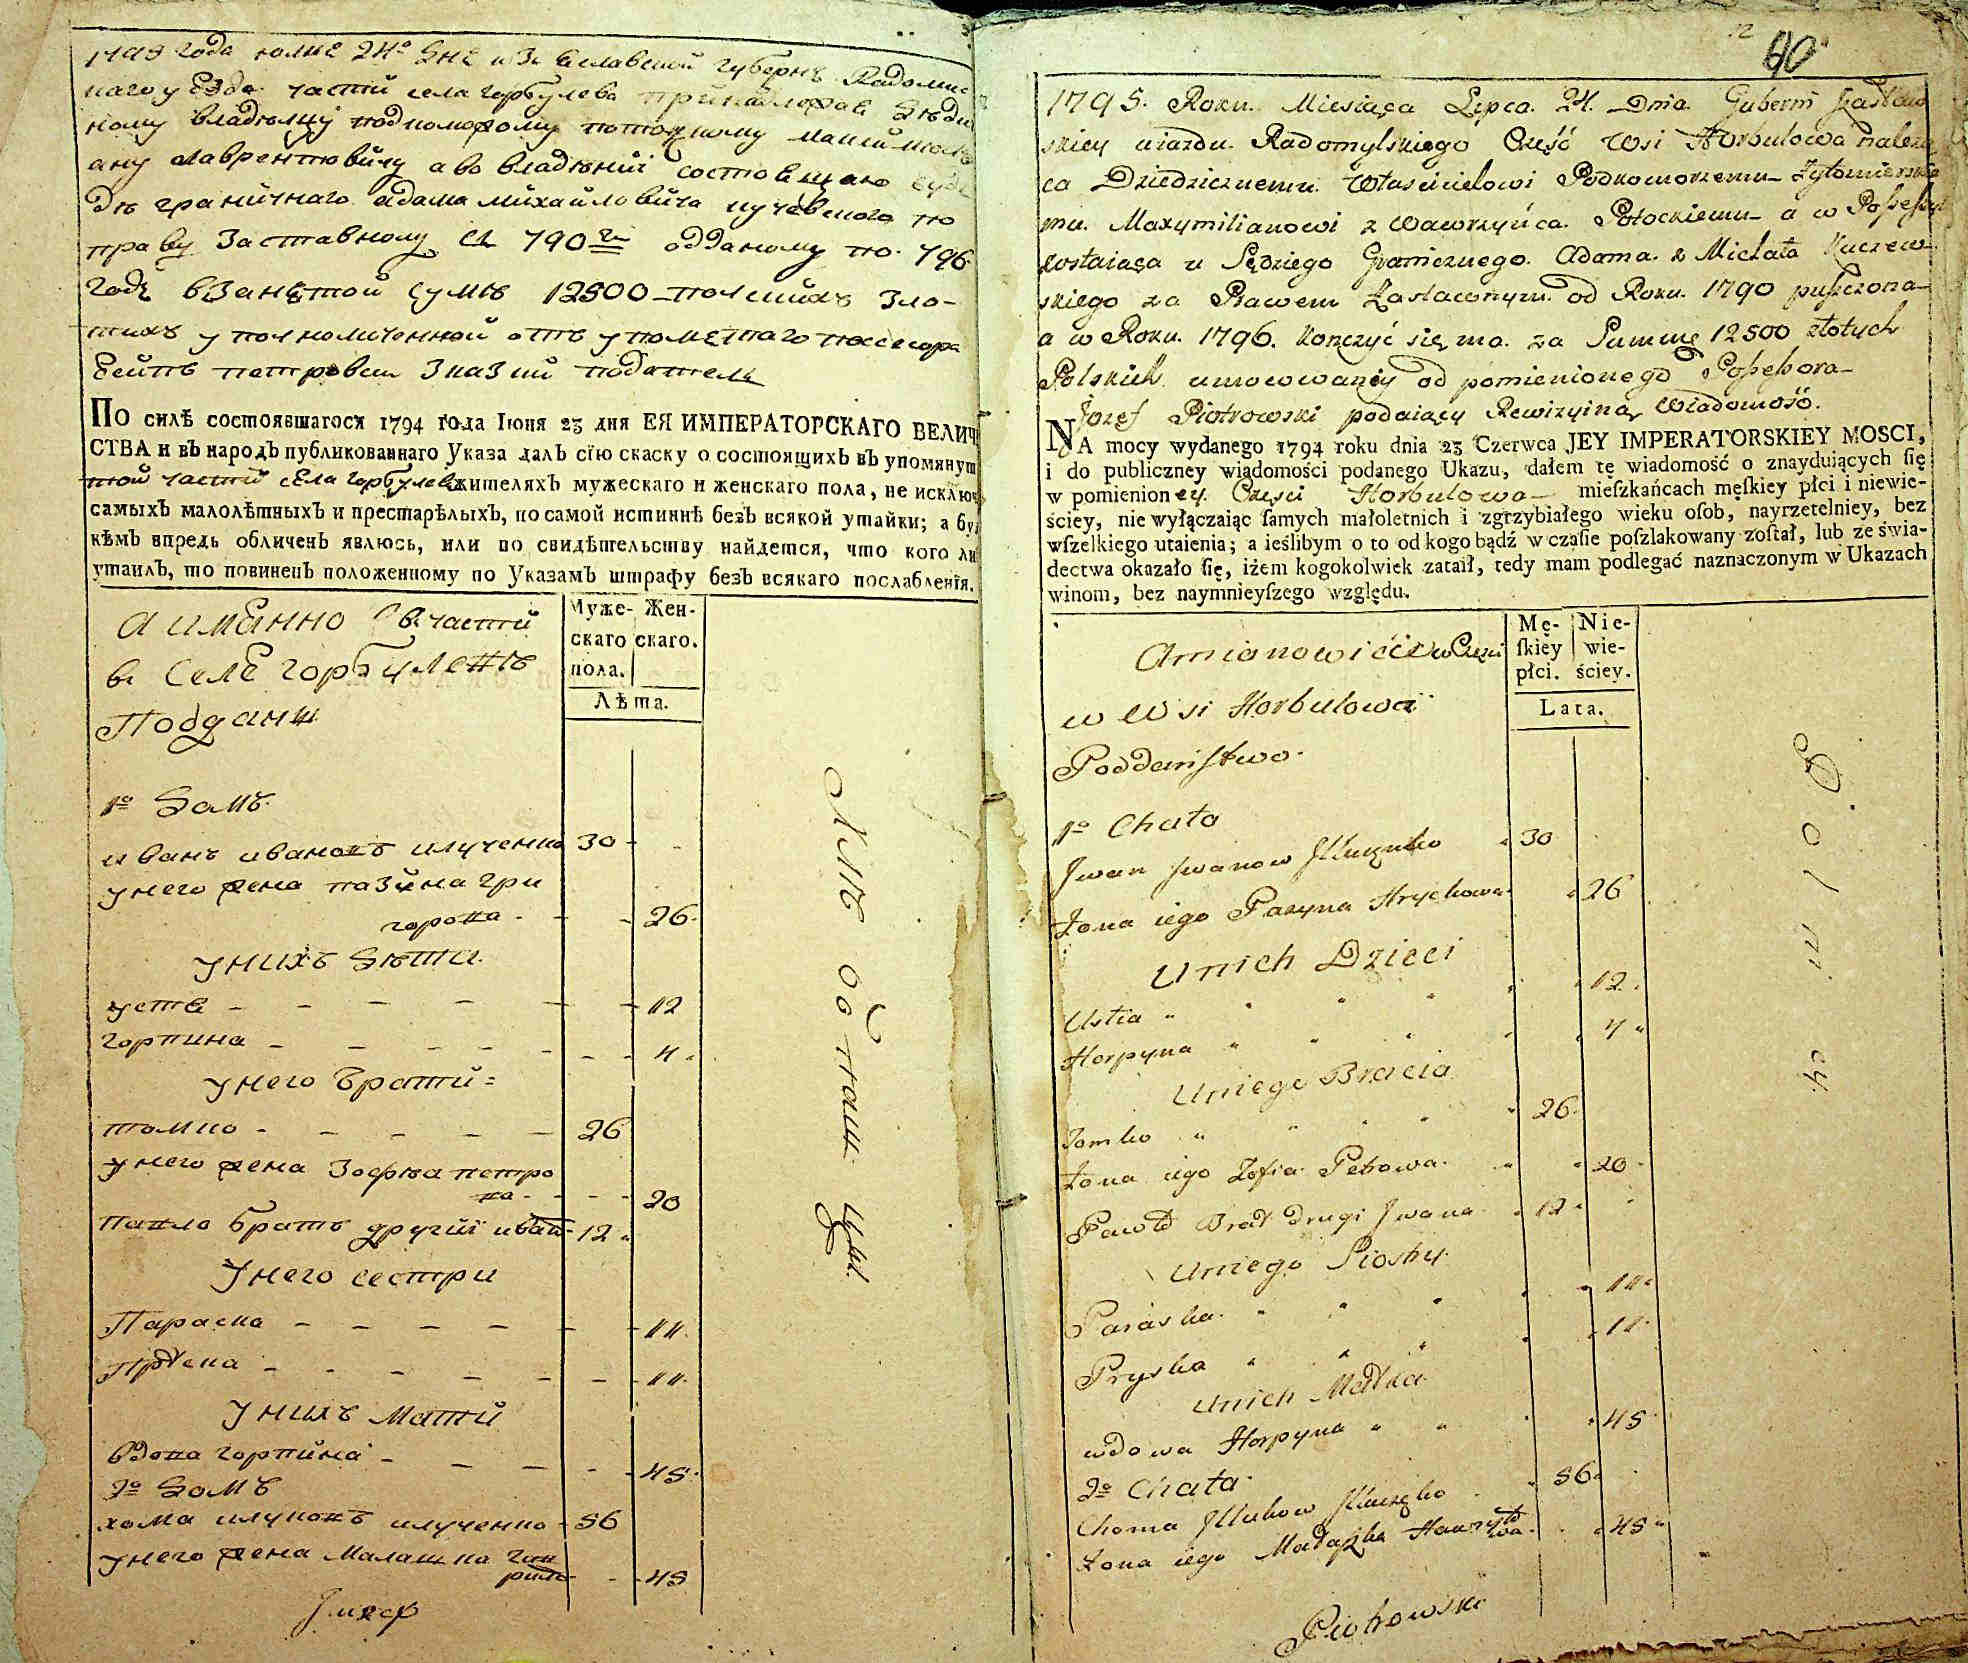 1795 года юлия 24º дня изяславской губерни Радомис
наго уезда части села горбулева принадлежав
ному владелцу подкоморому потоцкому максими
ану лаврентовичу а во владении состоящаю суд
ди граничнаго адама михайловича кучевского по
праву заставному съ 790 го отданому по 796
годъ взанятой сумѣ 12500 полскихъ зло-
тихъ уполномоченной отъ упомянтаго посесора
петровски сказки податель
По силѣ состоявшагося 1794 года Іюня 23 дня ЕЯ ИМПЕРАТОРСКАГО ВЕЛИЧ
СТВА и въ народъ публикованнаго Указа далъ сїю скаску о состоящихъ въ упомянут
той части села горбулева жителяхъ мужескаго и женскаго пола, не исключ
самыхъ малолѣтныхъ и престарѣлыхъ, по самой истиннѣ безъ всякой утайки; а бу
кѣмъ впредь обличенъ явлюсь, или по свидѣтельству найдется, что кого ли
утаилъ, то повиненъ положенному по Указамъ штрафу безъ всякаго послабленїя.
Муже- Жен-
скаго скаго.
пола.
Лѣта.
а иманно въ части
в селе горбулевѣ
Подданн
1º домъ
иванъ ивановъ илученко 30
у него жена пазина гри
горова - 26
у нихъ дѣти
устя - 12
горпина - 4
у него брати
томко - 26
у него жена зофѣа петро
ва - 20
павло братъ другий иван 12
у него сестри
Параска - 11
Приска - 11
у нихъ мати
вдова горпина - 45
2º домъ
хома илуковъ илученко - 56
у него жена малашка гав
рило - 45
Іозеф
40
1795. Roku. Miesiąca Lipca. 24. Dnia Guberni Zasław
skiey uiazdu Radomylskiego Część Wsi Horbulowa należą
ca Dziedzicznemu Właścicielowi Podkomorzemu Zytomierskie
mu. Maxymilianowi z Wawrzyńca. Potockiemu a w Possessyi
zostaiąca u Sędziego Granicznego. Adama. z Michała Kuczew-
skiego za Prawem Zastawnym od Roku. 1790 puszczona
a w Roku. 1796. konczyć się ma. za Summę 12500 złotych
Polskich umocowaney od pomienionego Possessora
Jozef Piotrowski podaiący Rewizyiną Wiadomość.
NA mocy wydanego 1794 roku dnia 23 Czerwca JEY IMPERATORSKIEY MOSCI,
i do publiczney wiadomości podanego Ukazu, dałem tę wiadomość o znayduiących ſię
w pomienioney Części Horbulowa mieſzkańcach męſkiey płci i niewie-
ściey, nie wyłączaiąc ſamych małoletnich i zgrzybiałego wieku oſob, nayrzetelniey, bez
wſzelkiego utaienia; a ieślibym o to od kogo bądź w czaſie poſzlakowany zoſtał, lub ze świa-
dectwa okazało ſię, iżem kogokolwiek zataił, tedy mam podlegać naznaczonym w Ukazach
winom, bez naymnieyſzego względu.
Mę- Nie-
ſkiey wie-
płci. ściey.
Lata.
Amianowicie w Części
w Wsi Horbulowa
Poddaństwo
1º Chata
Iwan Iwanow 30
Zona iego Pazyna Hrychowa 26
Unich Dzieci
Ustia 12
Horpyna 4
Uniego Bracia
Tomko 26
Zona iego Zofia Petrowa 20
Pawło Brat drugi Iwana 12
Uniego Siostry
Paraska 11
Pryska 11
Unich Matka
wdowa Horpyna 45
2º Chata
Choma 56
Zona iego Małaszka Hawryło
wa 45
Piotrowski